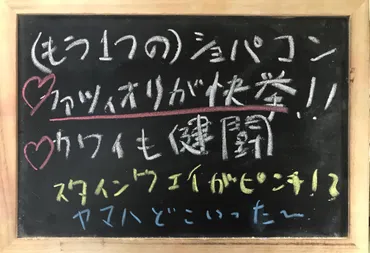 (もう1つの)ショパコン
ファツィオリが快挙!!
カワイも健闘
スタインウェイがピンチ!?
ヤマハどこいった〜